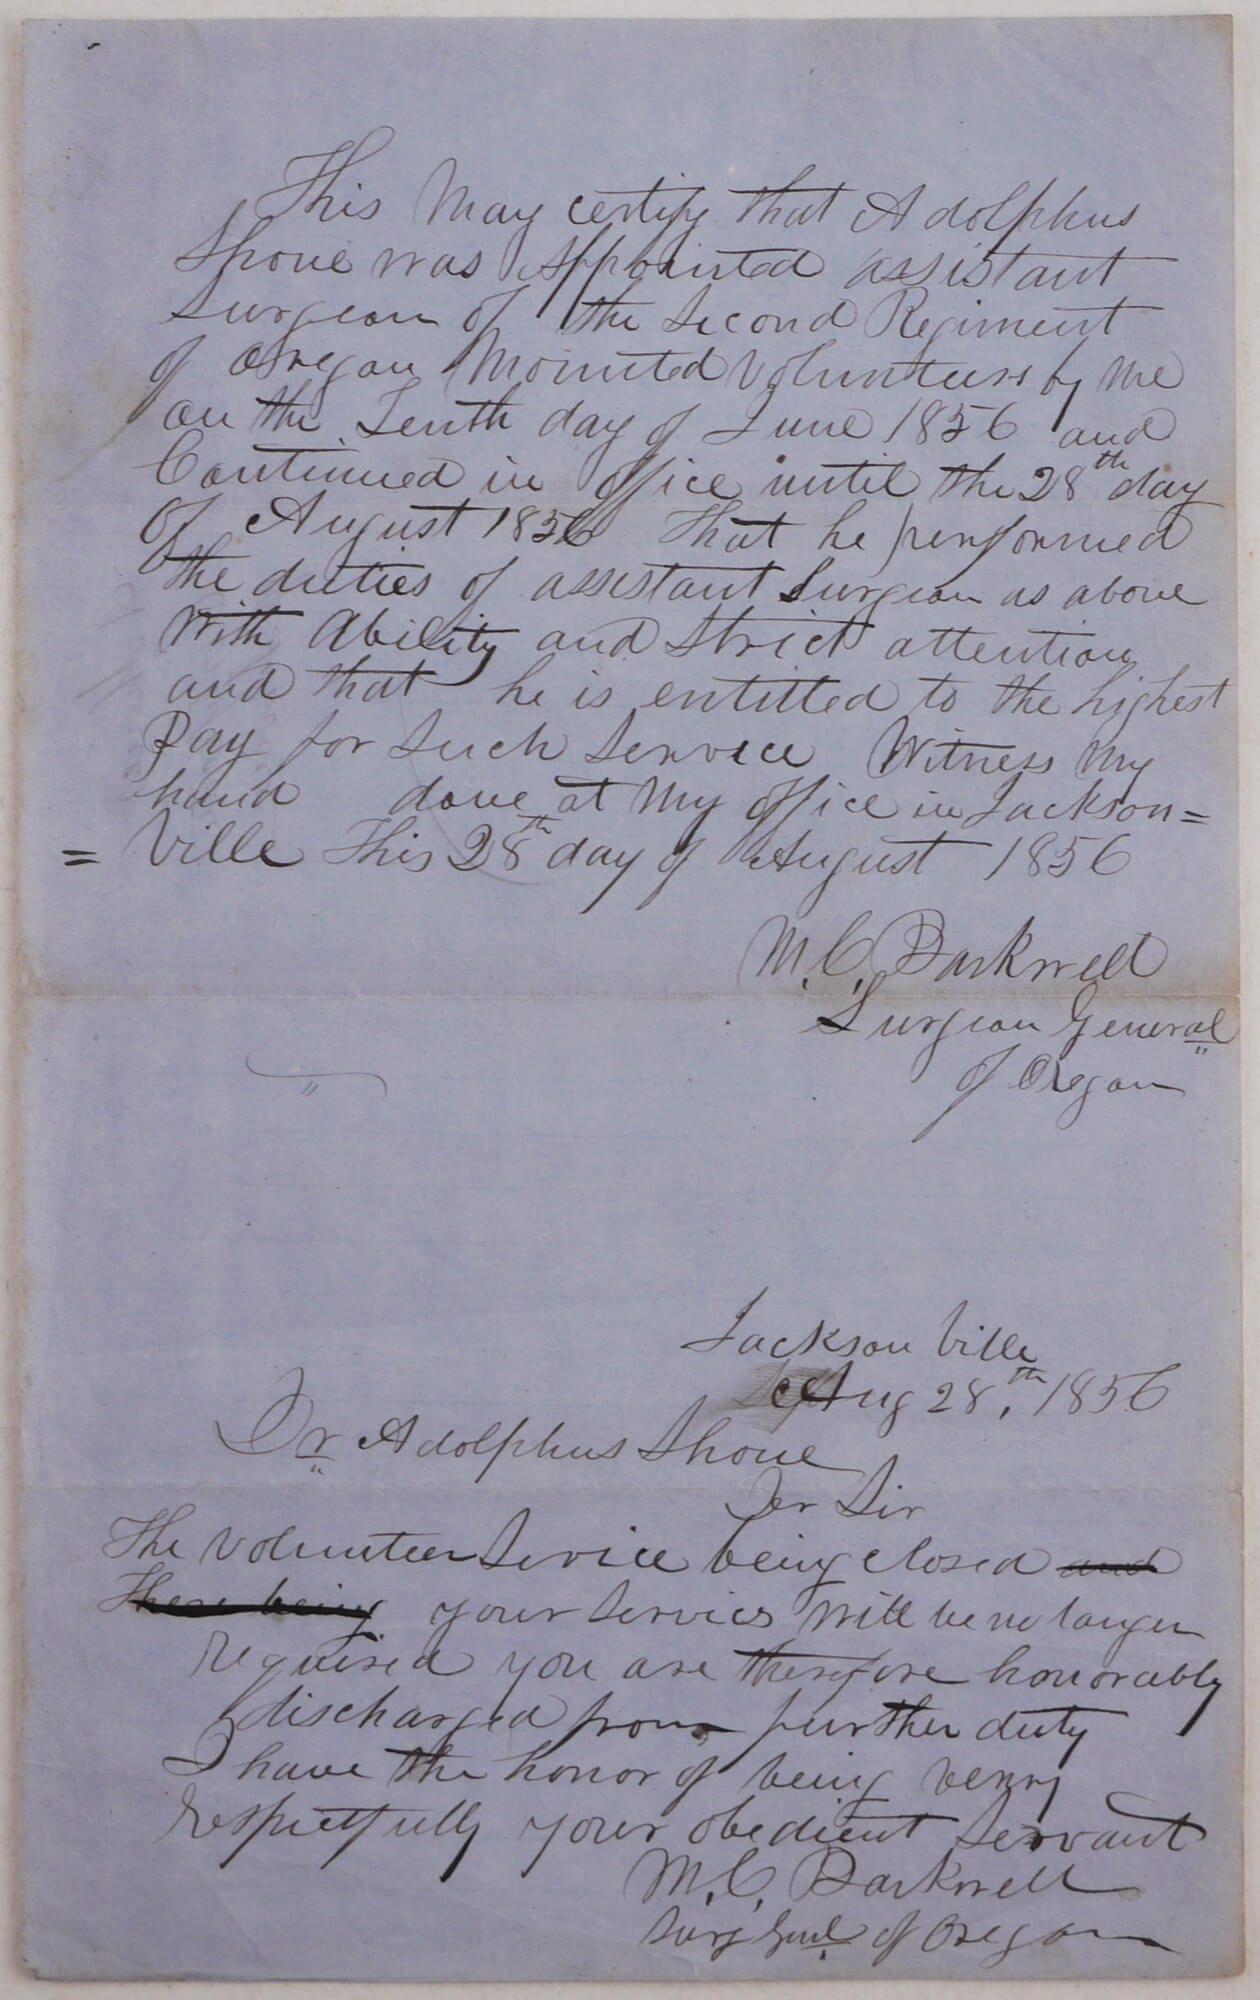 This May certify that Adolphus
Shoue was Appointed assistant
Surgeon of the Second Regiment
of Oregon Mounted Volunteers by me
on the Tenth day of June 1856 and
Continued in office until the 28th day
of August 1856 That he performed
the duties of assistant Surgeon as above
With Ability and Strict attention
and that he is entitled to the highest
Pay for Such Service Witness My
hand done at My office in Jackson=
=Ville This 28th day of August 1856
M. C. Barkwell
Surgeon General
of Oregon
Jackson Ville
Aug 28th, 1856
Dr Adolphus Shoue
Der Sir
The Volunteer Service being closed and
There being your Services Will be no longer
Required you are therefore honorably
discharged from further duty
I have the honor of being verry
respectfully your obedient Servant
M. C. Barkwell
Surg Genl of Oregon